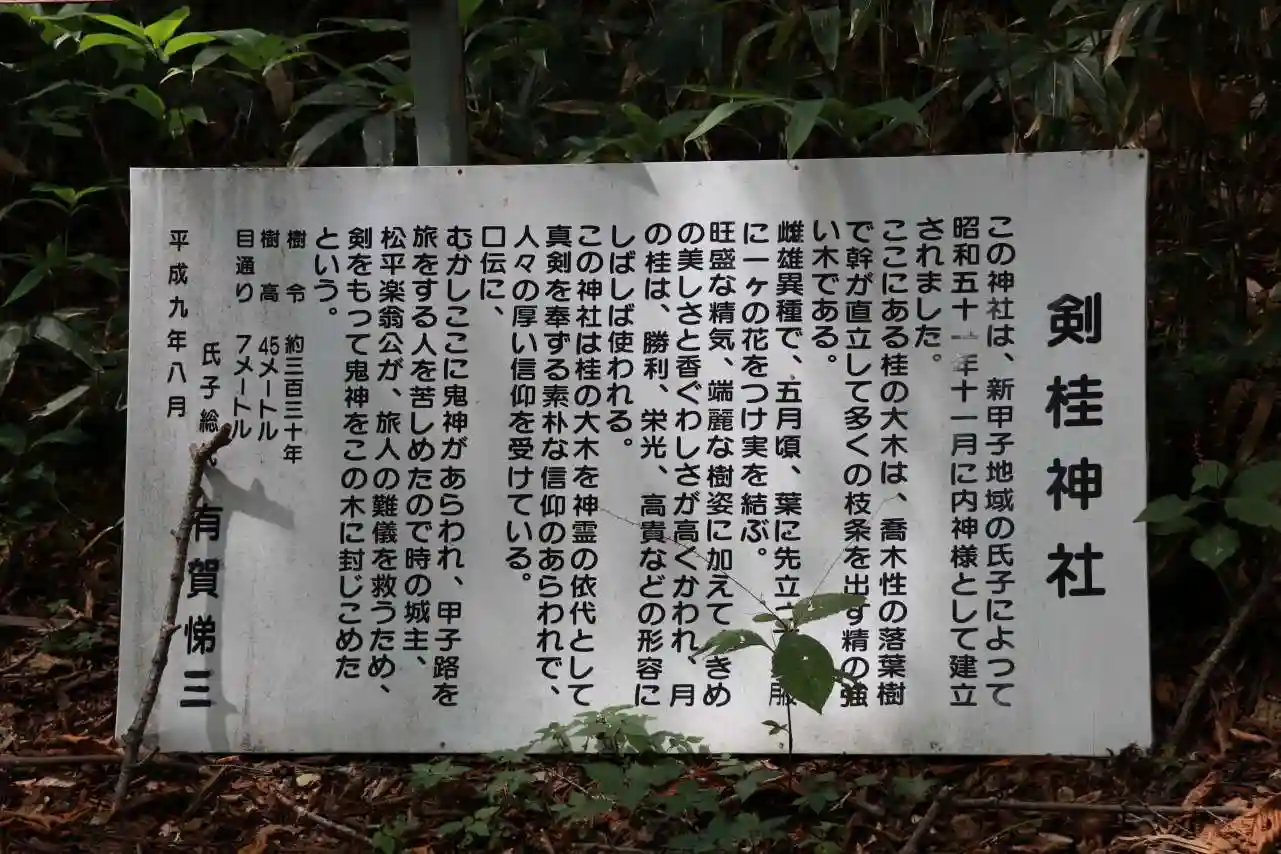 剣桂神社
この神社は、新甲子地域の氏子によって
昭和五十一年十一月に内神様として建立
されました。
ここにある桂の大木は、喬木性の落葉樹
で幹が直立して多くの枝条を出す精の強
い木である。
雌雄異種で、五月頃、葉に先立
に一ヶの花をつけ実を結ぶ。
旺盛な精気、端麗な樹姿に加えて きめ
の美しさと香ぐわしさが高くかわれ、月
の桂は、勝利、栄光、高貴などの形容に
しばしば使われる。
この神社は桂の大木を神霊の依代として
真剣を奉ずる素朴な信仰のあらわれで、
人々の厚い信仰を受けている。
口伝に、
むかしここに鬼神があらわれ、甲子路を
旅をする人を苦しめたので時の城主、
松平楽翁公が、旅人の難儀を救うため、
剣をもって鬼神をこの木に封じこめた
という。
樹 令 約三百三十年
樹 高 45メートル
目通り 7メートル
氏子総 有賀悌三
平成九年八月